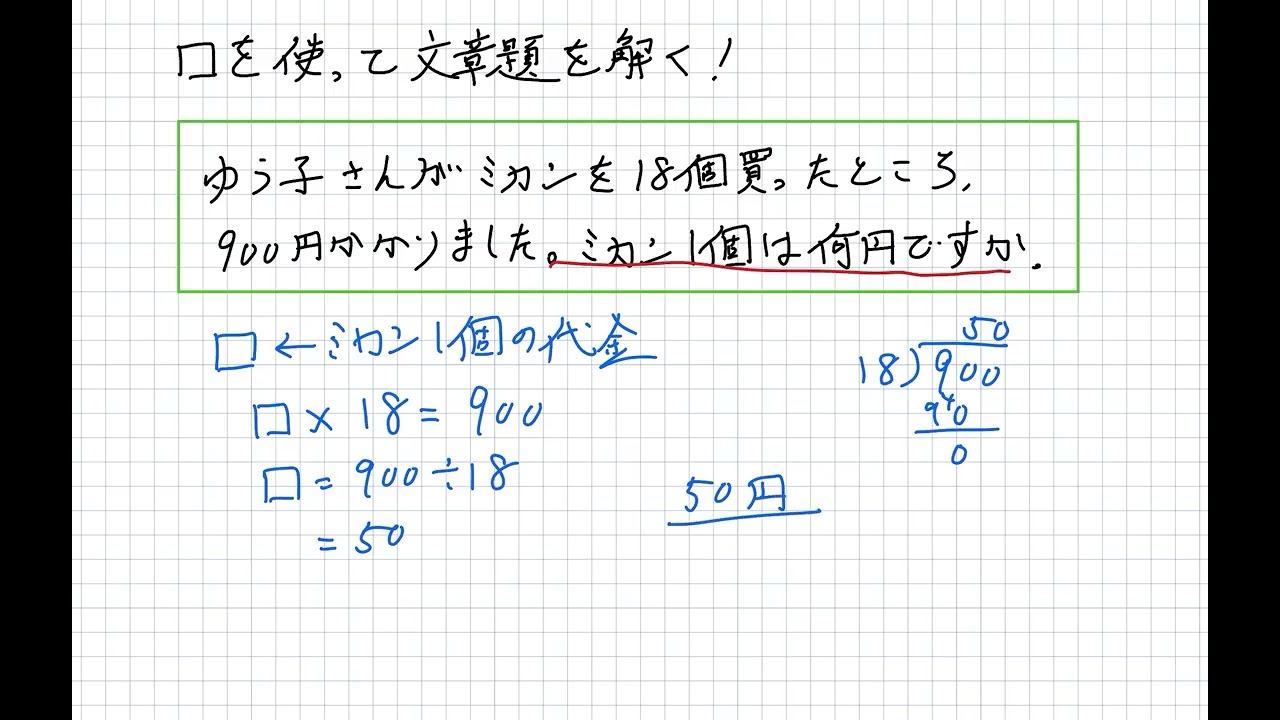 □を使って文章題を解く!
ゆう子さんがミカンを18個買ったところ、
900円かかりました。ミカン1個は何円ですか.
□ ← ミカン1個の代金
□ × 18 = 900
□ = 900 ÷ 18
= 50
50円
50
18)900
90
4
0